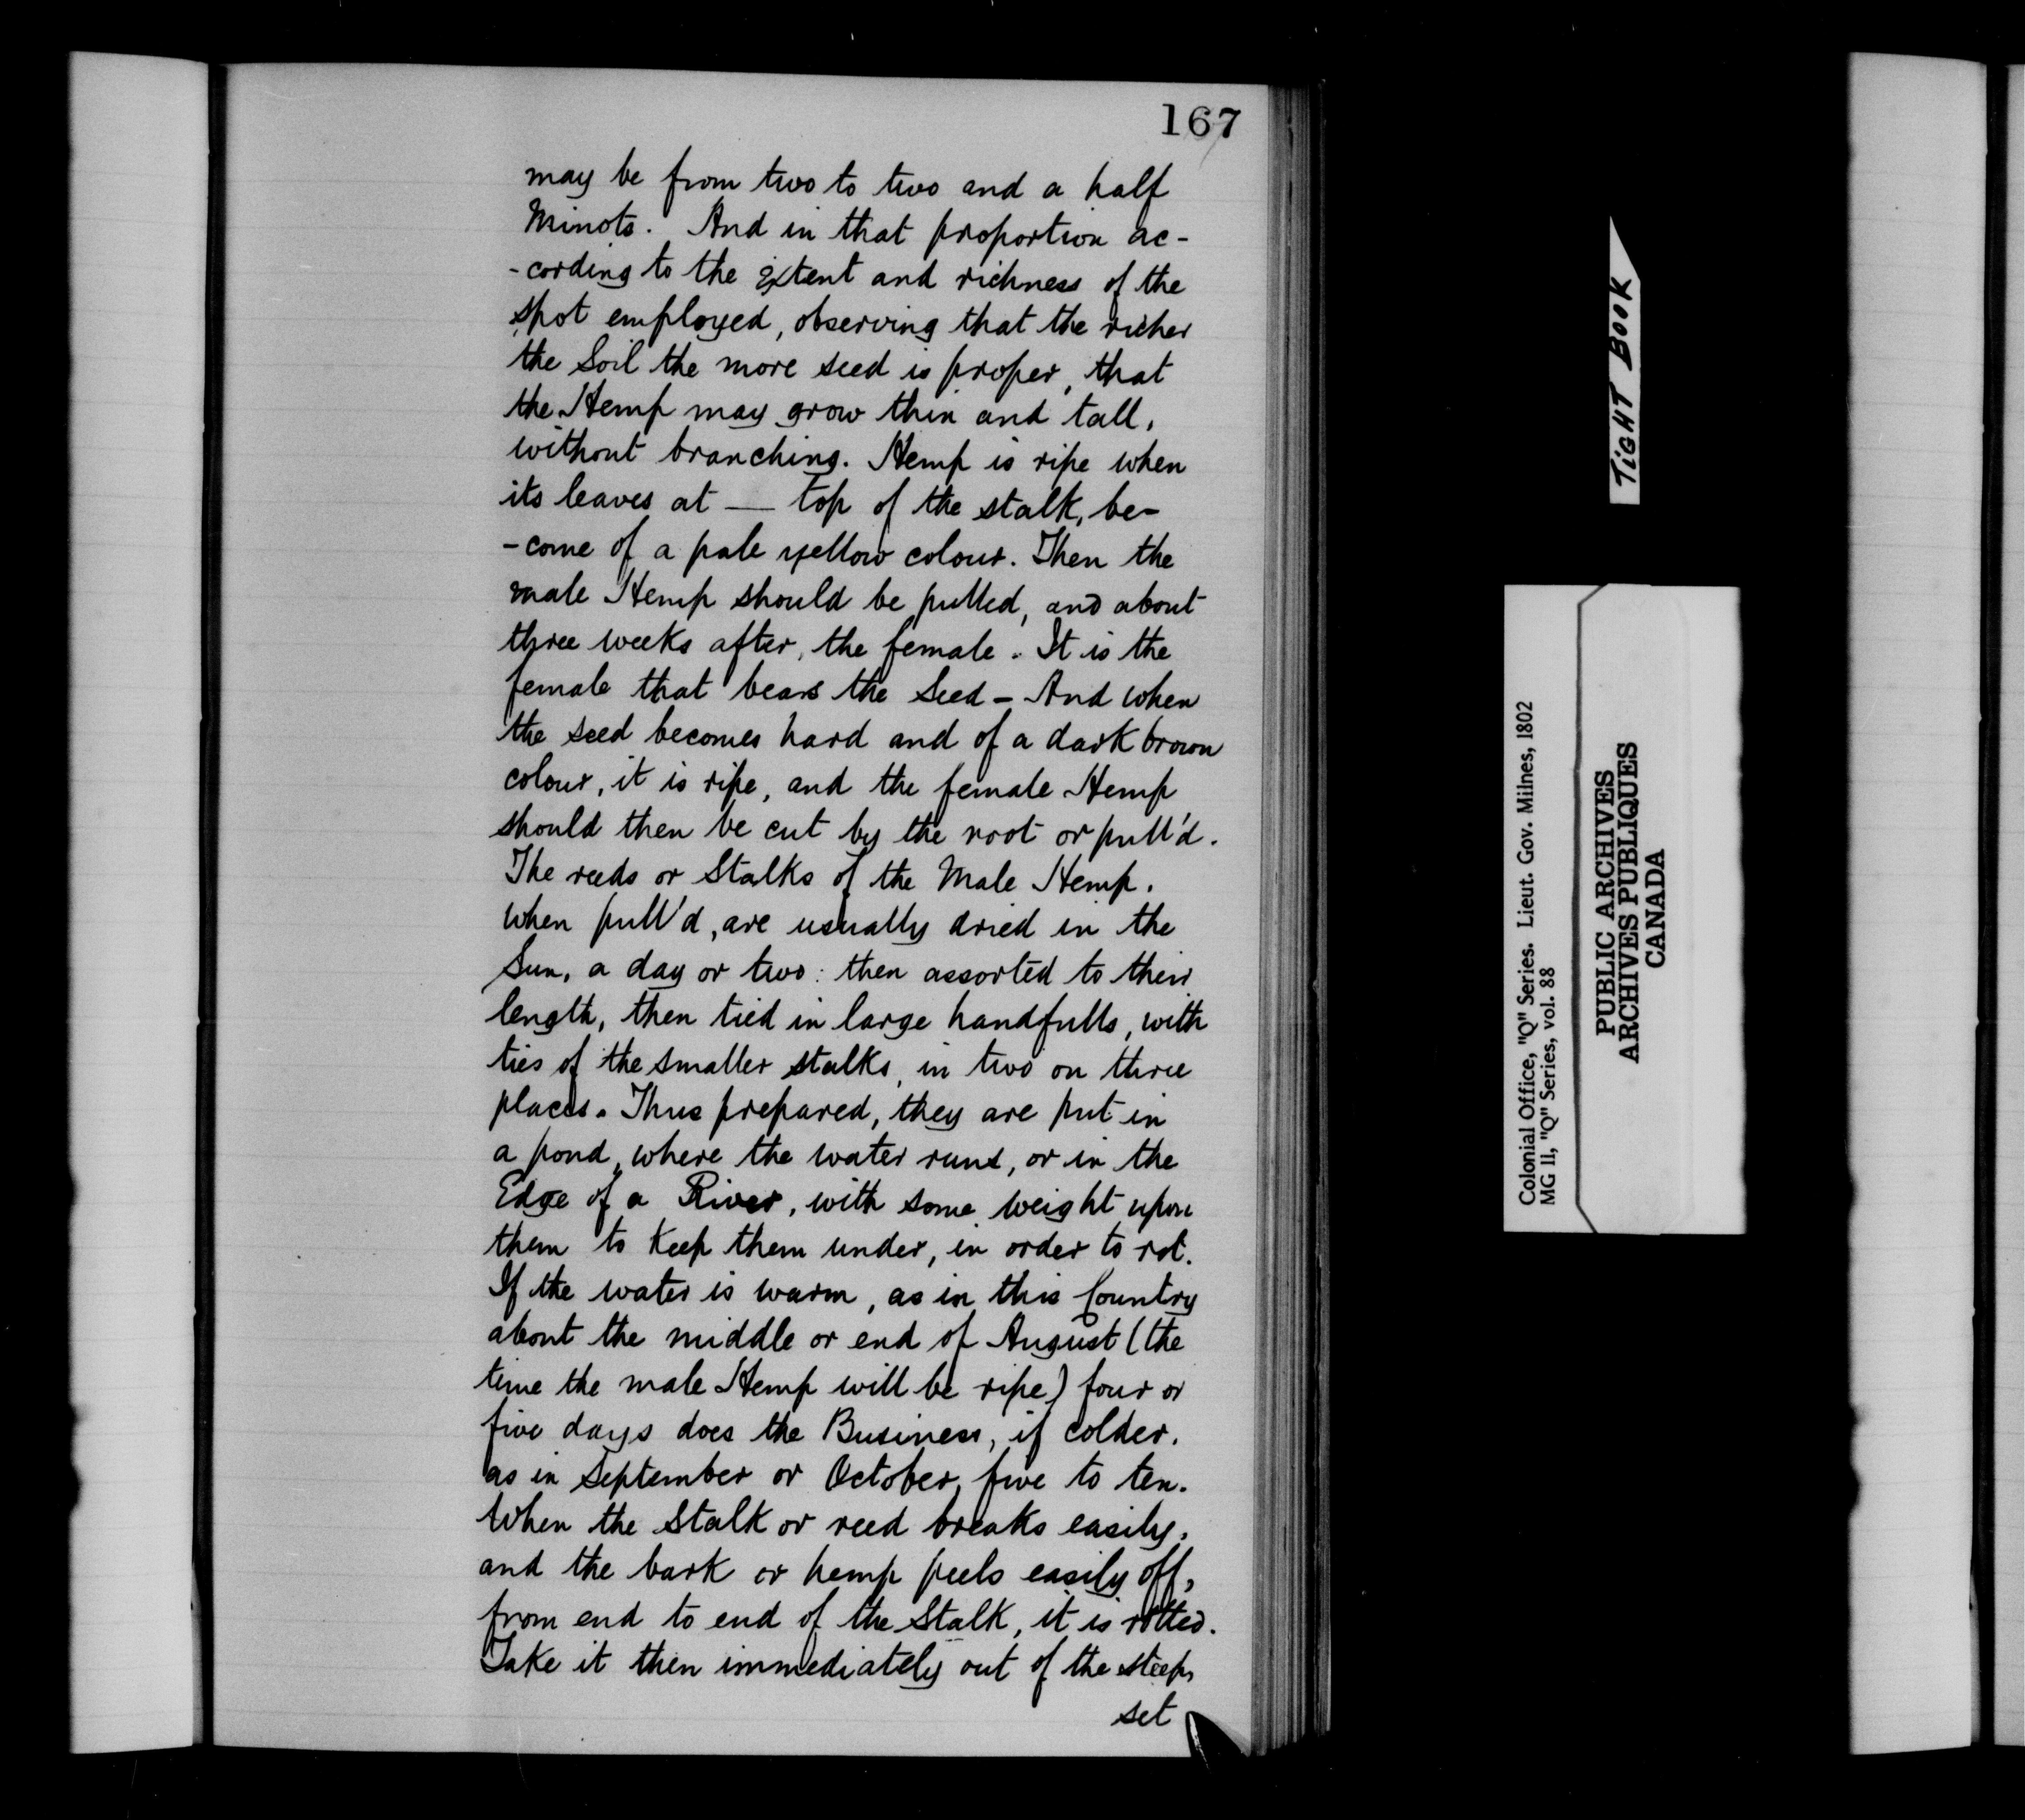 167
may be from two to two and a half
Minots. And in that proportion ac-
-cording to the extent and richness of the
spot employed, observing that the richer
the Soil the more seed is proper, that
the Hemp may grow thin and tall,
without branching. Hemp is ripe when
its leaves at — top of the stalk, be-
-come of a pale yellow colour. Then the
male Hemp should be pulled, and about
three weeks after, the female. It is the
female that bears the Seed - And when
the seed becomes hard and of a dark brown
colour, it is ripe, and the female Hemp
should then be cut by the root or pull'd.
The reeds or Stalks of the Male Hemp,
when pull'd, are usually dried in the
Sun, a day or two: then assorted to their
length, then tied in large handfulls, with
ties of the smaller stalks, in two on three
places. Thus prepared, they are put in
a pond, where the water runs, or in the
Edge of a River, with some weight upon
them to Keep them under, in order to rot.
If the water is warm, as in this Country
about the middle or end of August (the
time the male Hemp will be ripe) four or
five days does the Business, if colder,
as in September or October, five to ten.
When the Stalk or reed breaks easily,
and the bark or hemp peels easily off,
from end to end of the Stalk, it is rotted.
Take it then immediately out of the steep,
set
TIGHT BOOK
Colonial Office, "Q" Series. Lieut. Gov. Milnes, 1802
MG 11, "Q" Series, vol. 88
PUBLIC ARCHIVES
ARCHIVES PUBLIQUES
CANADA